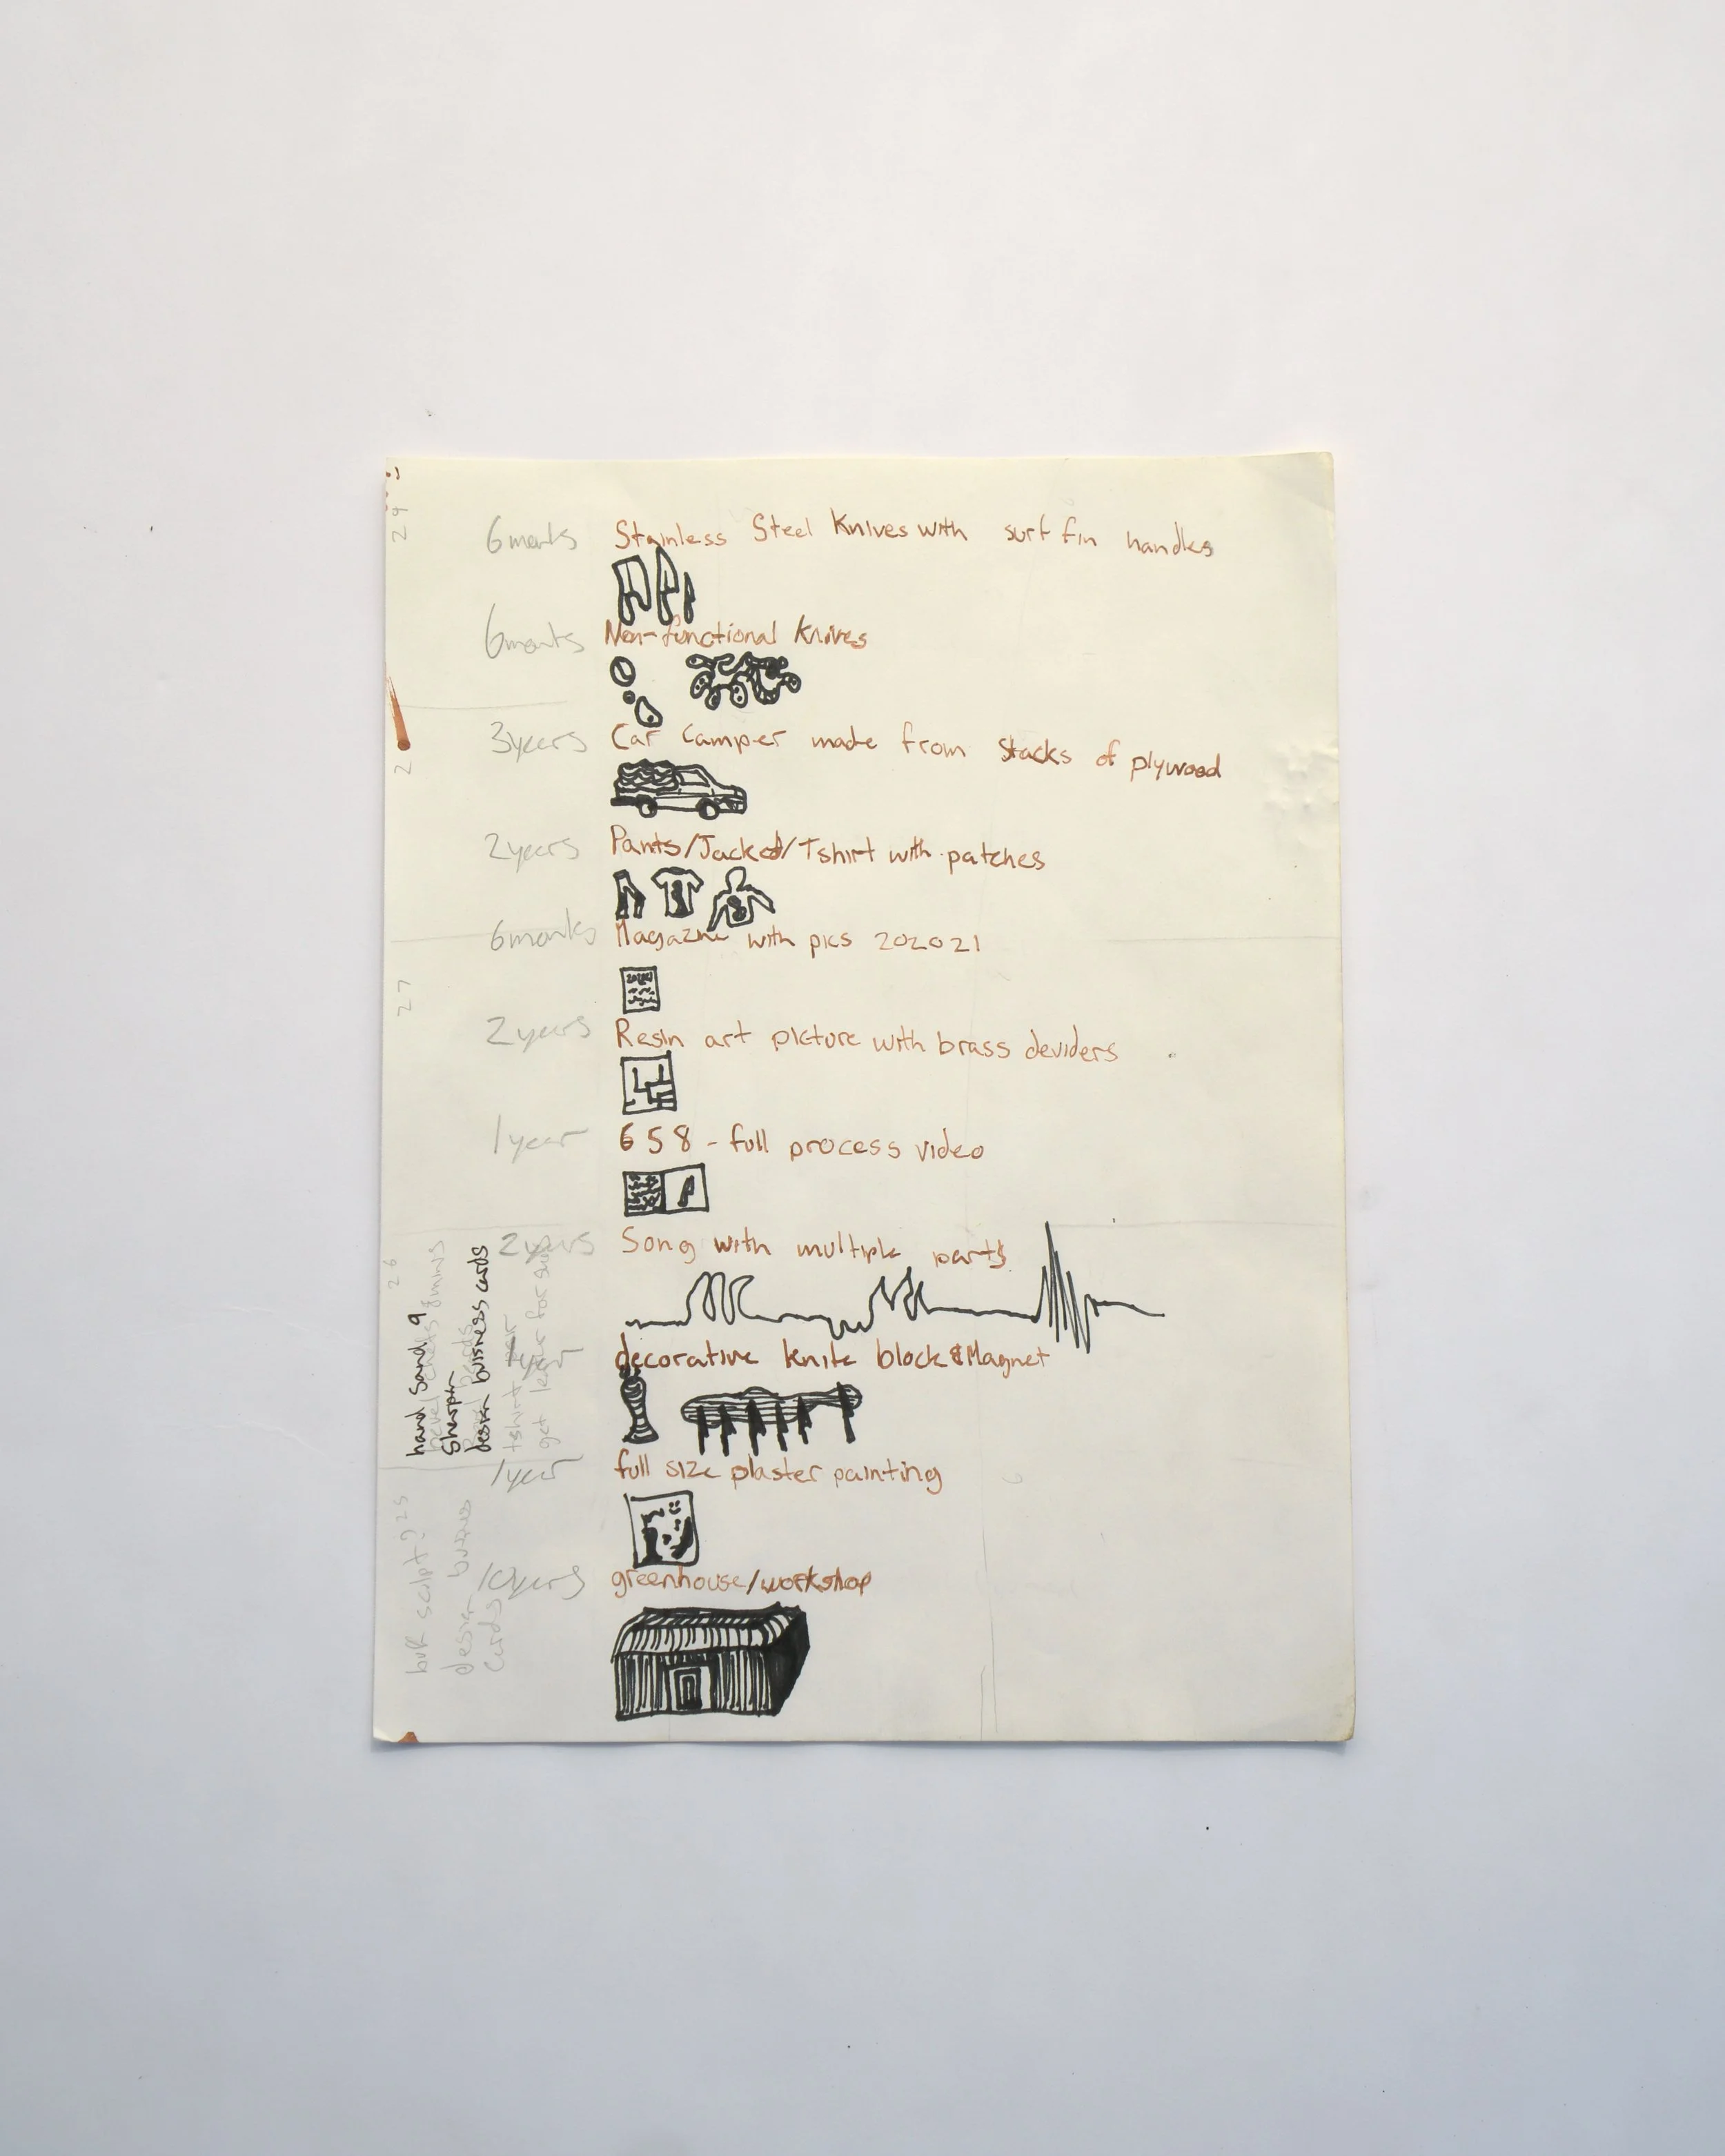 29
6 monts Stainless Steel Knives with surf fin handles
6 monts Non-functional Knives
3 years Car Camper made from stacks of plywood
2
2 years Pants/Jacket/Tshirt with patches
6 monts Magazine with pics 202021
27
2 years Resin art picture with brass deviders
1 year 658 - full process video
2 years Song with multiple parts
26
1 year decorative knife block & Magnet
hand sand 9
sharpen
design buisness cards
tshirt
get
for
1 year full size plaster painting
25
10 years greenhouse/workshop
sculpt?
design
cards